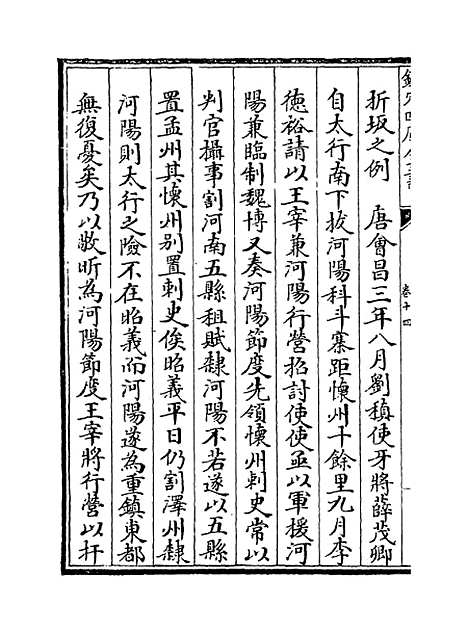 欽定四庫全書
卷十四
折坂之例　唐會昌三年八月劉稹使牙將薛茂卿
自太行南下拔河陽科斗寨距懷州十餘里九月李
德裕請以王宰兼河陽行營招討使使亟以軍援河
陽兼臨制魏博又奏河陽節度先領懷州刺史常以
判官攝事割河南五縣租賦隸河陽不若遂以五縣
置孟州其懷州別置刺史俟昭義平日仍割澤州隸
河陽則太行之險不在昭義而河陽遂為重鎮東都
無復憂矣乃以敬昕為河陽節度王宰將行營以扞